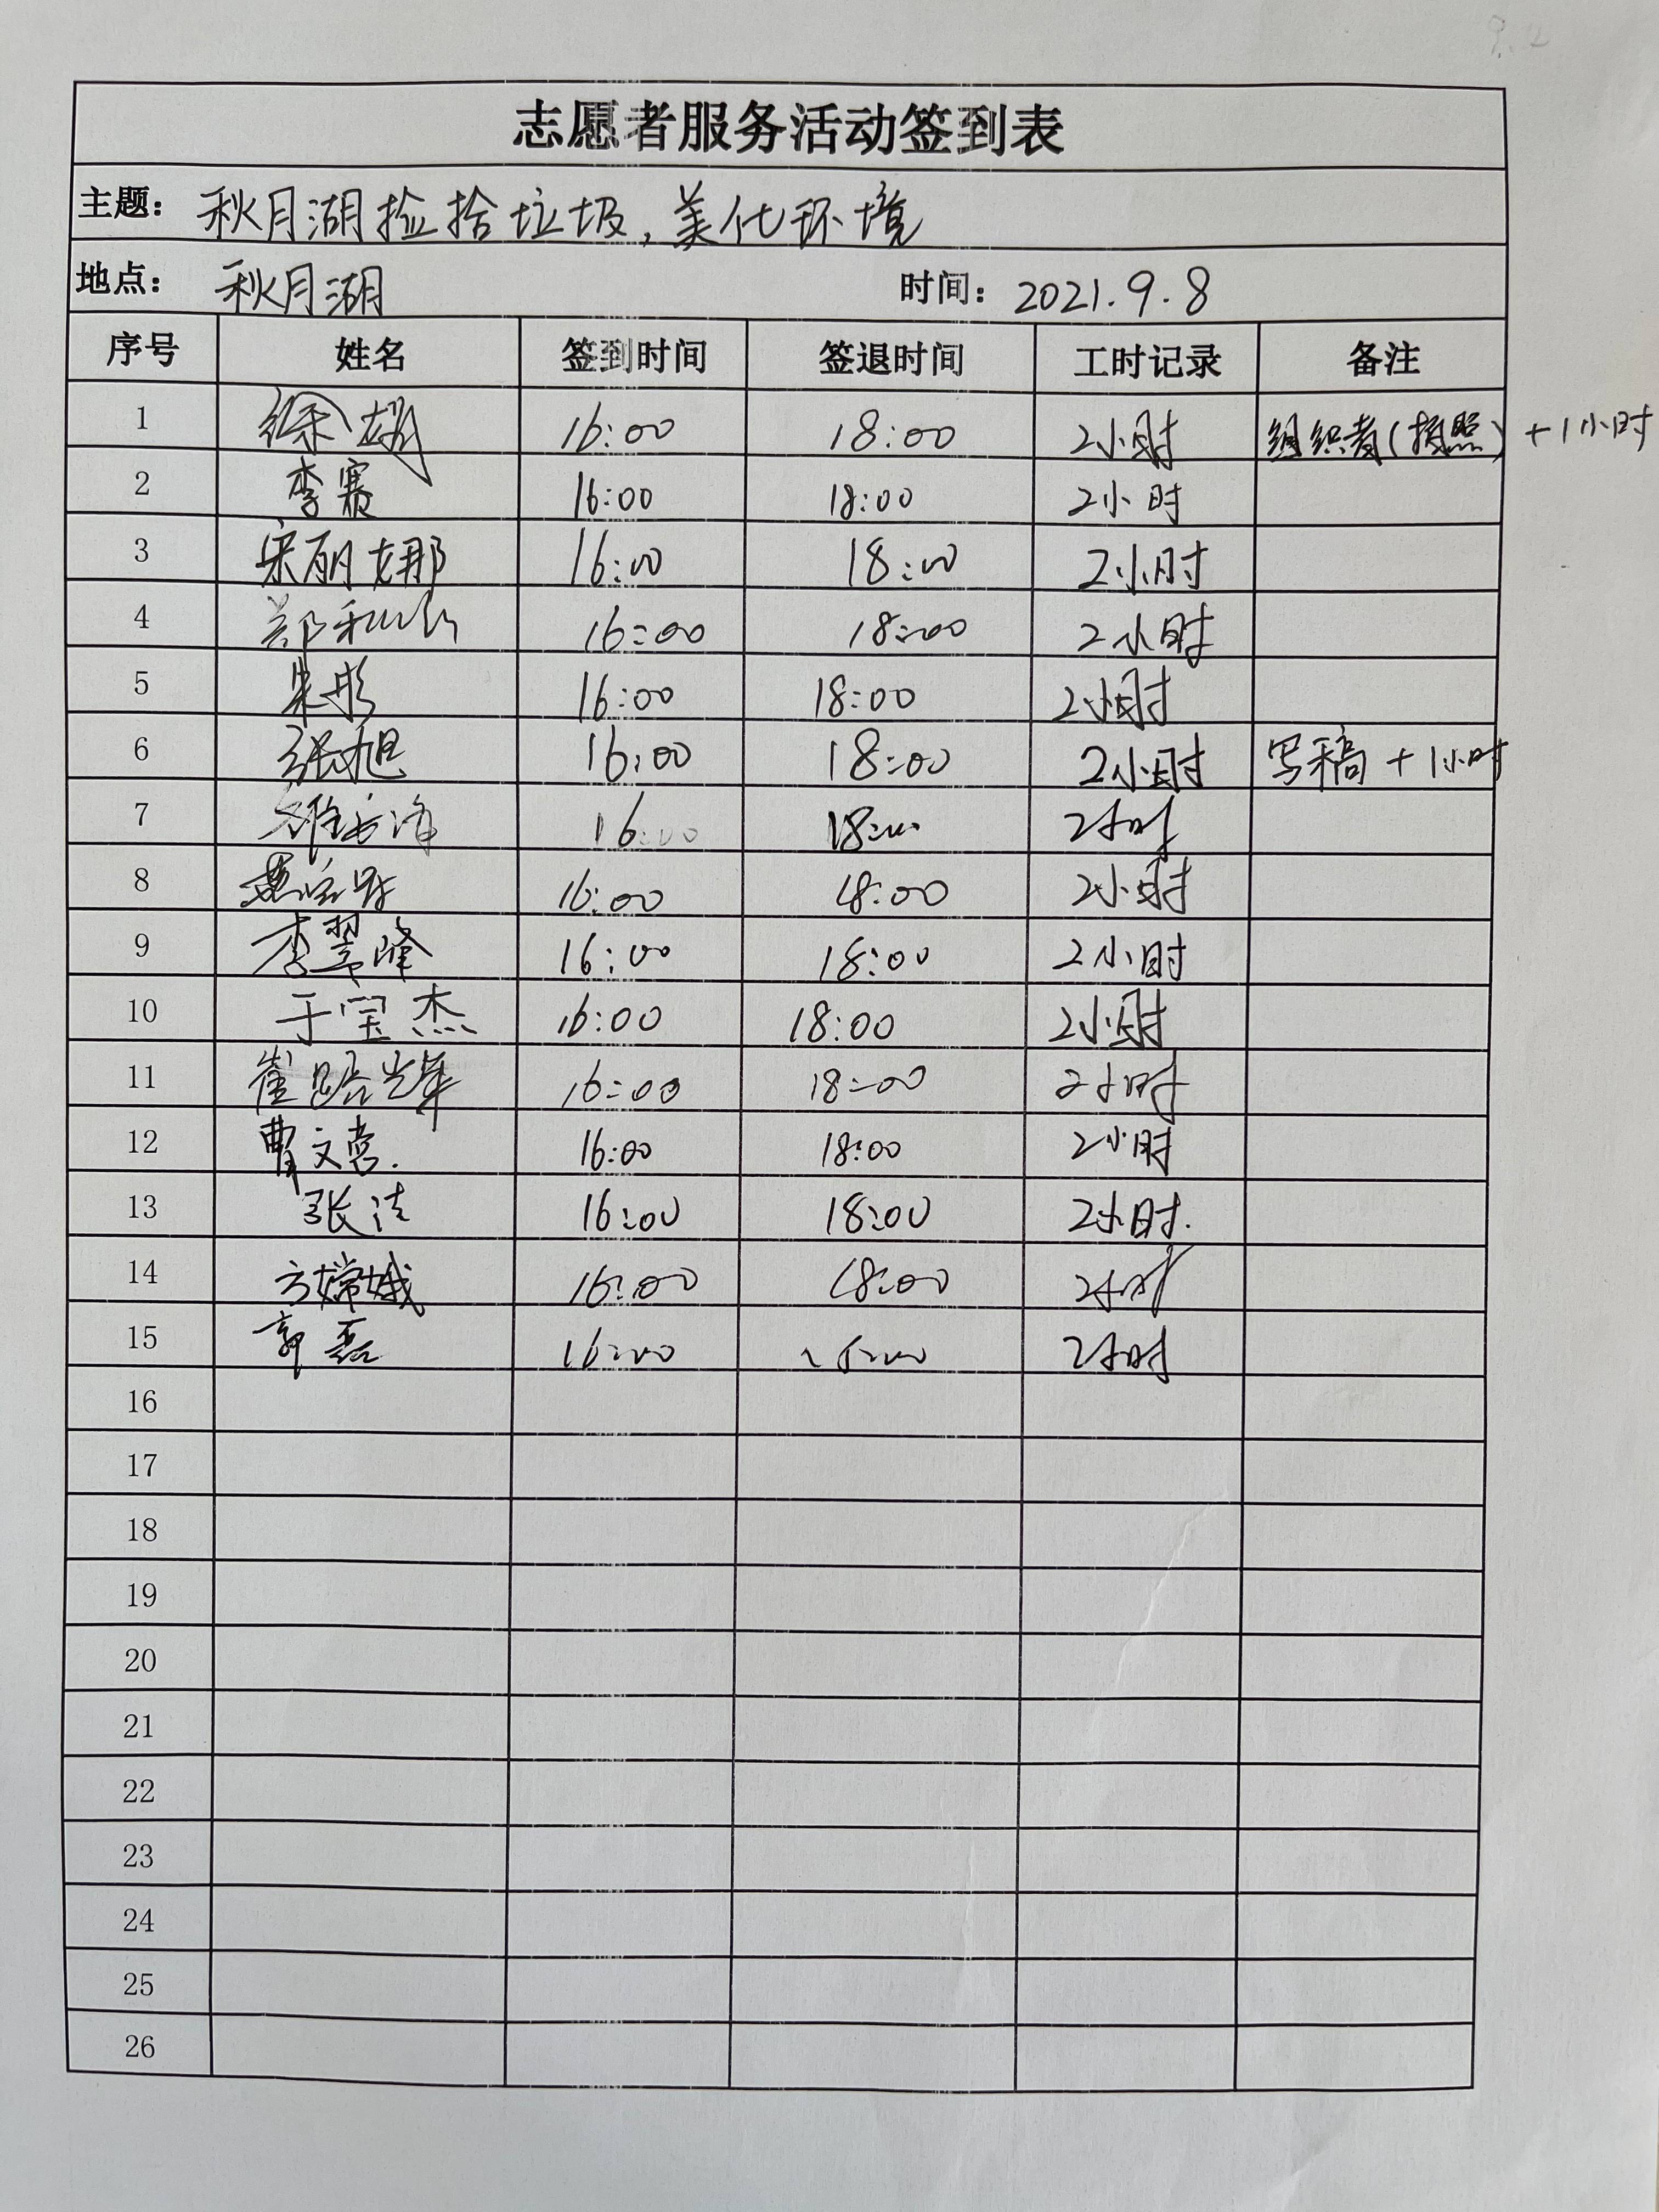 志愿者服务活动签到表
主题： 秋月湖捡拾垃圾，美化环境
地点： 秋月湖 时间： 2021.9.8
序号 姓名 签到时间 签退时间 工时记录 备注
1 16:00 18:00 2小时 组织者(拍照) +1小时
2 李赛 16:00 18:00 2小时
3 宋丽娜 16:00 18:00 2小时
4 郑 16:00 18:00 2小时
5 朱彤 16:00 18:00 2小时
6 张旭 16:00 18:00 2小时 写稿 +1小时
7 16:00 18:00 2小时
8 16:00 18:00 2小时
9 李翠峰 16:00 18:00 2小时
10 于宝杰 16:00 18:00 2小时
11 崔 16:00 18:00 2小时
12 曹文 16:00 18:00 2小时
13 张洁 16:00 18:00 2小时.
14 方嫦娥 16:00 18:00 2小时
15 郭磊 16:00 2小时
16
17
18
19
20
21
22
23
24
25
26